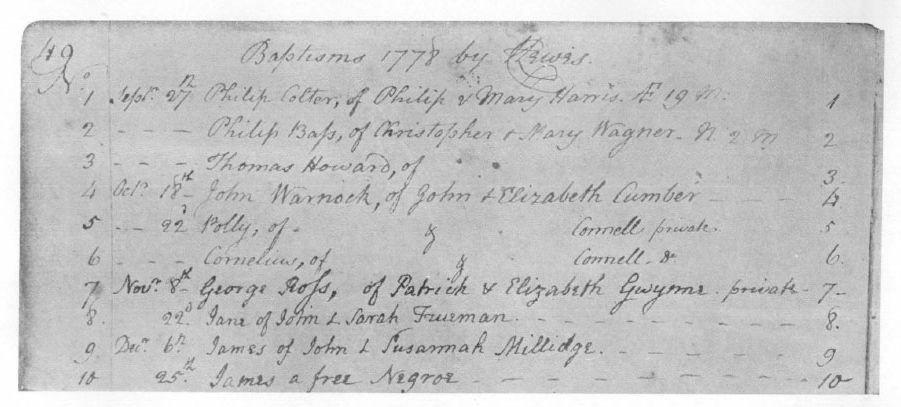 49
Baptisms 1778 by Lewis.
No.
1 Septr. 27th Philip Colter, of Philip & Mary Harris. Æ 19 M. 1
2 - - - Philip Bass, of Christopher & Mary Wagner - Æ. 2 M 2
3 - - - Thomas Howard, of 3
4 Octr. 18th John Warnock, of John & Elizabeth Cumber - - - 4
5 - - 22d Polly, of - & Connell private. 5
6 - - - Cornelius, of & Connell. & 6.
7 Novr. 8th George Ross, of Patrick & Elizabeth Gwynne. private - 7 -
8. 22d Jane of John & Sarah Freeman. - - - - - - 8.
9 Decr. 6th James of John & Susannah Millidge. - - - - - 9
10 25th James a free Negroe - - - - - - - 10